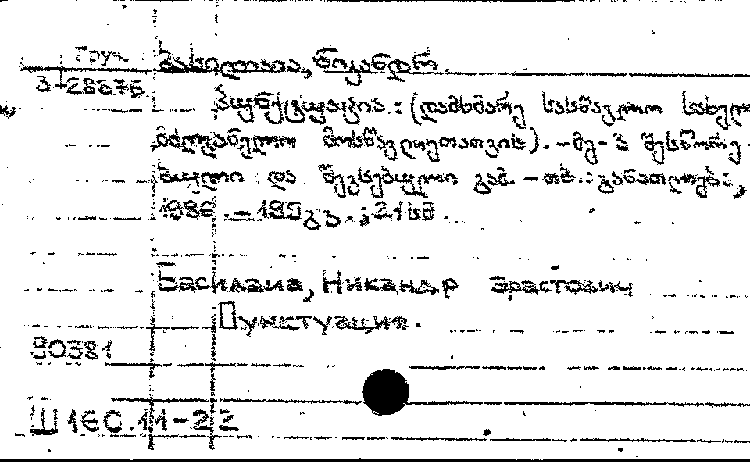 Груз
3-28676
ბასილაია, ნიკანდრ.
პუნქტუაცია : (დამხმარე სასწავლო სახელ
მძღვანელო მოსწავლეთათვის). - მე-3 შესწორე
ბული და შევსებული გამ. - თბ. : განათლება,
1986. - 195 გვ. ; 21 სმ.
Басилаиа, Никандр Эрастович
Пунктуация.
90381
Ш 16С.11-22